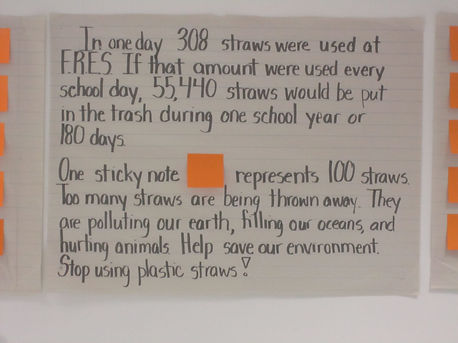 In one day 308 straws were used at
FRES. If that amount were used every
school day, 55,440 straws would be put
in the trash during one school year or
180 days.
One sticky note represents 100 straws.
Too many straws are being thrown away. They
are polluting our earth, filling our oceans, and
hurting animals. Help save our environment.
Stop using plastic straws!